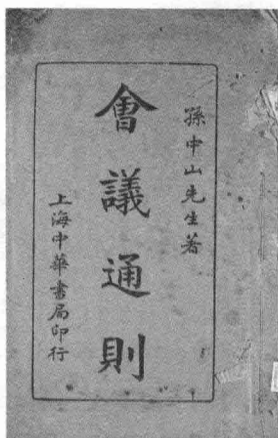 孫中山先生著
會議通則
上海中華書局印行